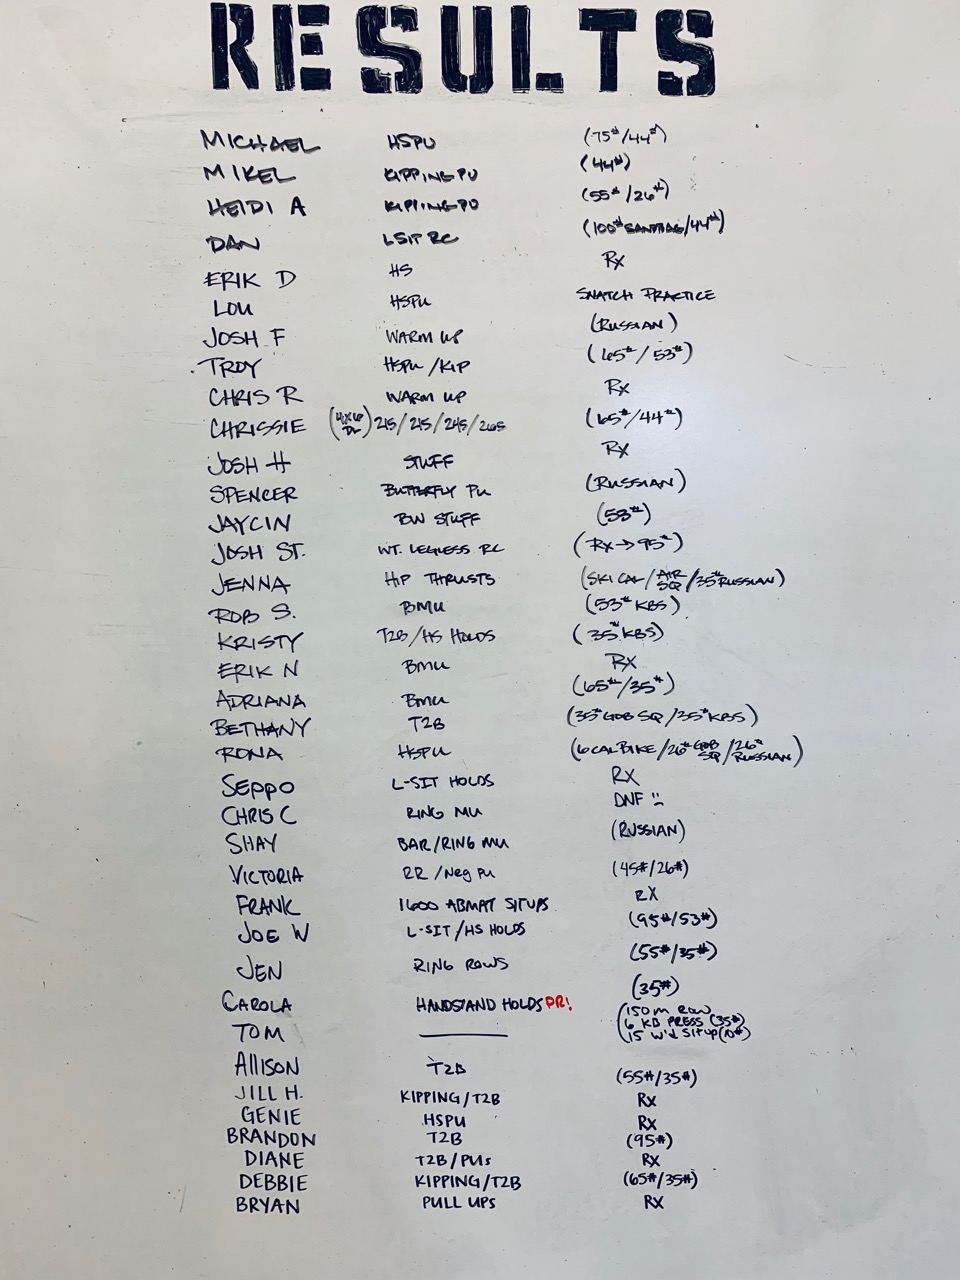 RESULTS
MICHAEL HSPU (75#/44#)
MIKEL KIPPING PU (44#)
HEIDI A KIPPING PU (55#/26#)
DAN LSIT RC (100# SANDBAG/44#)
ERIK D HS RX
LOU HSPU SNATCH PRACTICE
JOSH F WARM UP (RUSSIAN)
TROY HSPU/KIP (65#/53#)
CHRIS R WARM UP RX
CHRISSIE (4X6 DL) 215/215/245/265 (65#/44#)
JOSH H STUFF RX
SPENCER BUTTERFLY PU (RUSSIAN)
JAYCIN BW STUFF (53#)
JOSH ST. WT. LEGLESS RC (RX→95#)
JENNA HIP THRUSTS (SKI CAL/AIR SQ/35# RUSSIAN)
ROB S. BMU (53# KBS)
KRISTY T2B/HS HOLDS (35# KBS)
ERIK N BMU RX
ADRIANA BMU (65#/35#)
BETHANY T2B (35# GOB SQ/35# KBS)
RONA HSPU (6 CAL BIKE/26# GOB SQ/26# RUSSIAN)
SEPPO L-SIT HOLDS RX
CHRIS C RING MU DNF
SHAY BAR/RING MU (RUSSIAN)
VICTORIA RR/Neg PU (45#/26#)
FRANK 1600 ABMAT SITUPS RX
JOE W L-SIT/HS HOLDS (95#/53#)
JEN RING ROWS (55#/35#)
CAROLA HANDSTAND HOLDS PR! (35#)
TOM (150m ROW
6 KB PRESS (35#)
15 W'd SITUP (10#)
ALLISON T2B (55#/35#)
JILL H. KIPPING/T2B RX
GENIE HSPU RX
BRANDON T2B (95#)
DIANE T2B/PUs RX
DEBBIE KIPPING/T2B (65#/35#)
BRYAN PULL UPS RX